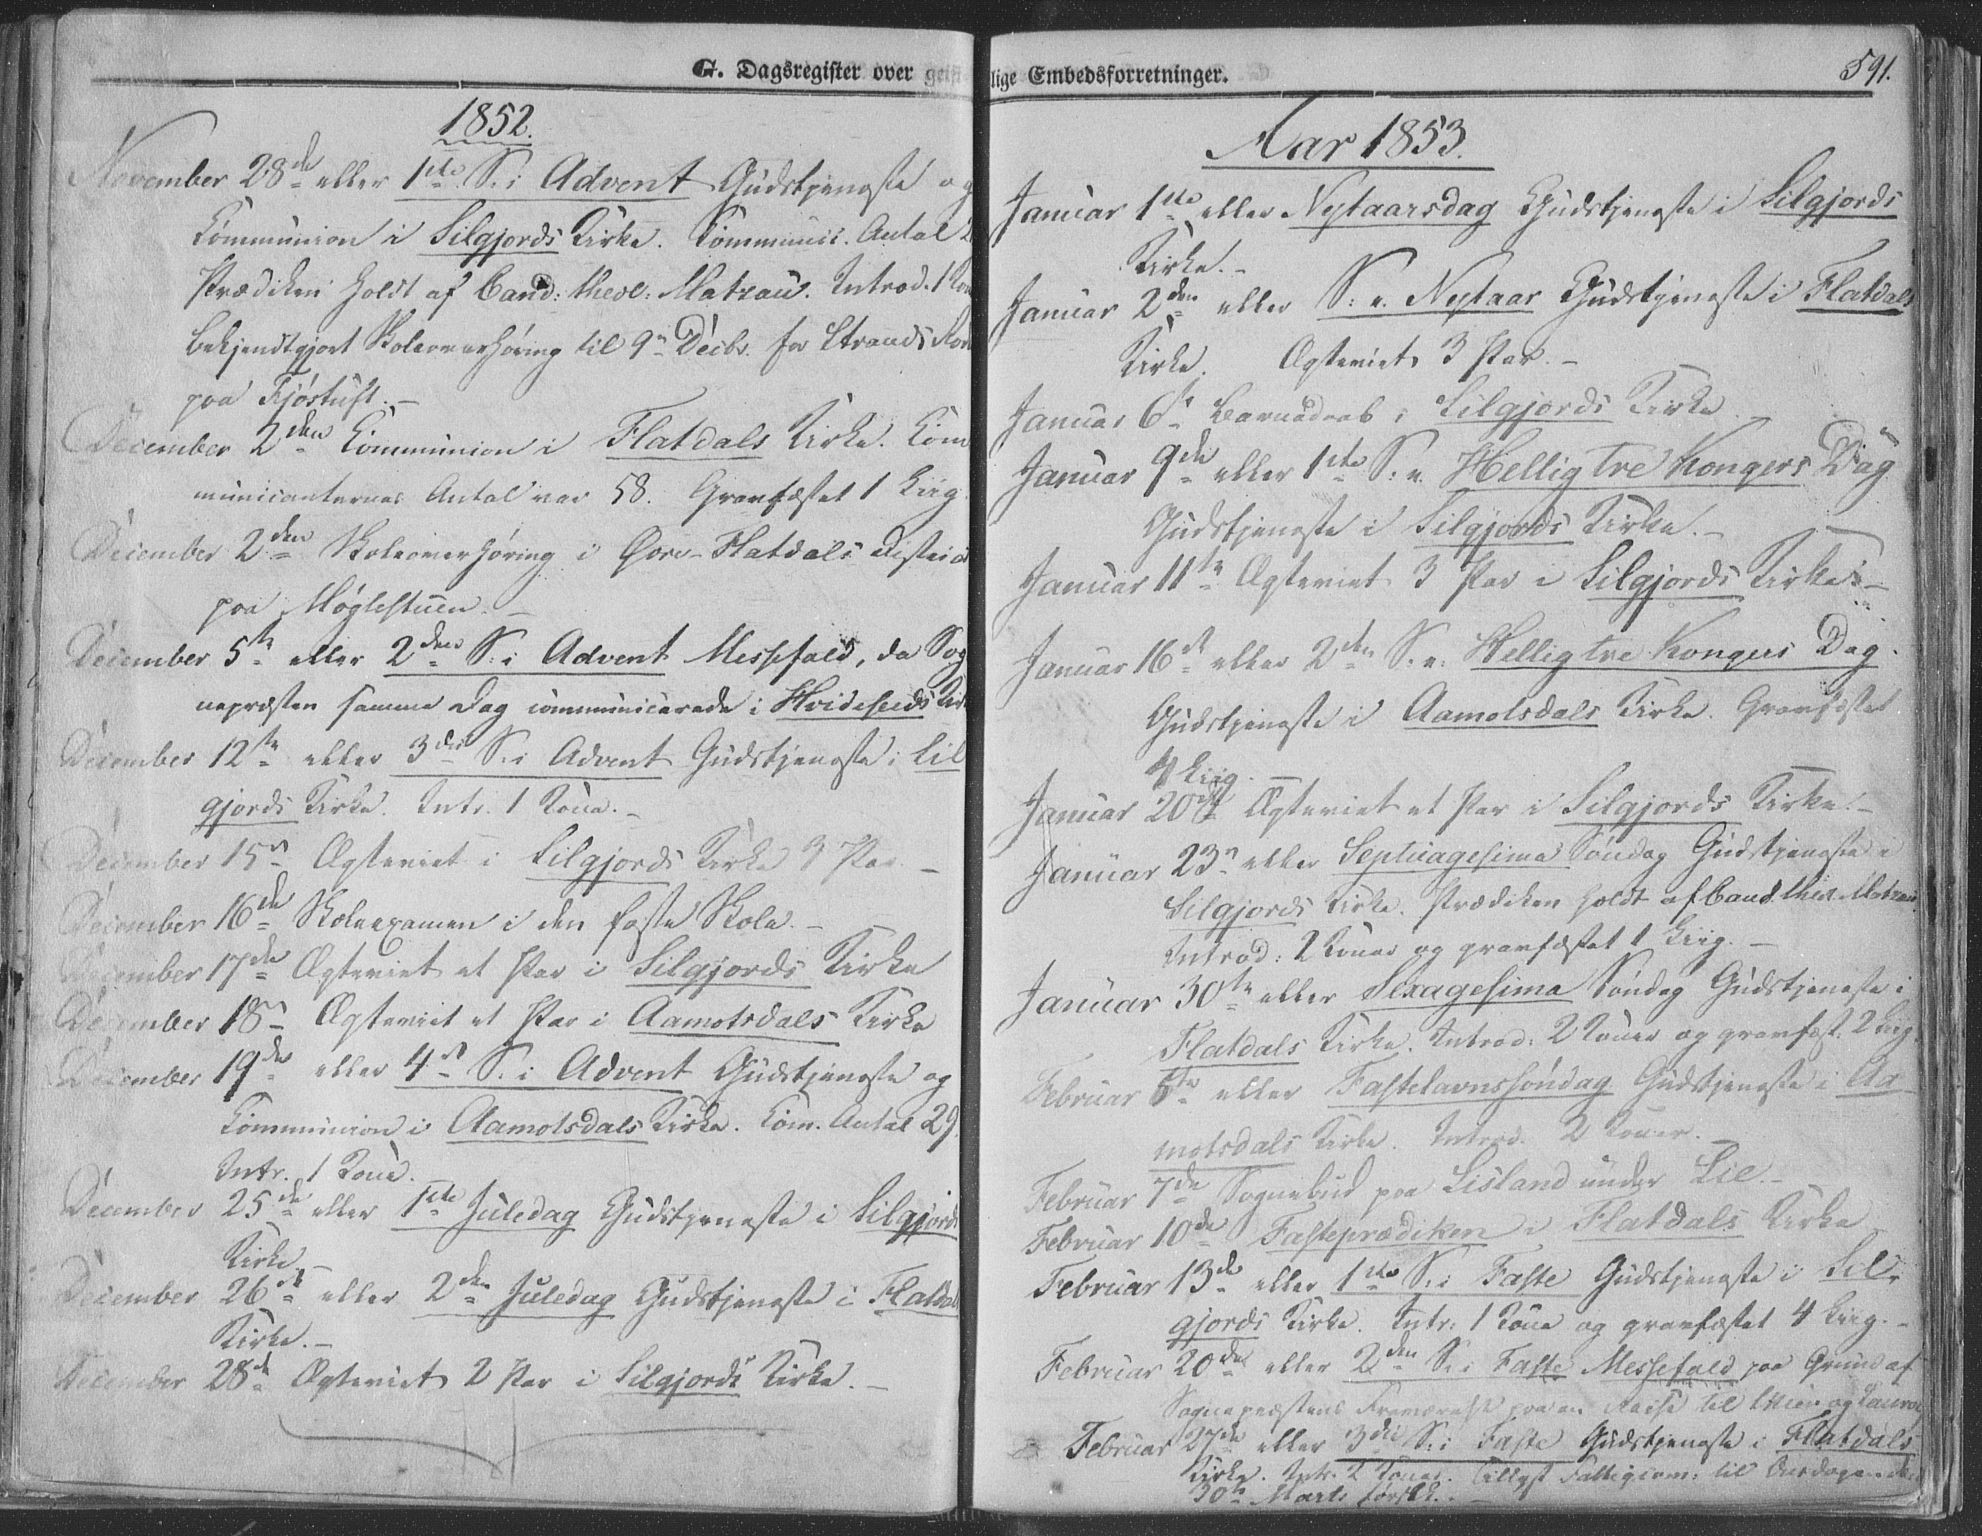 G. Dagsregister over geist
1852.
November 28de eller 1ste S. i Advent Gudstjeneste og
Communion i Silgjords Kirke. Communic. Antal
Prædiken holdt af Cand: theol: Matzau. Introd. 1 Kone
bekjendtgjort Skoleoverhøring til 9de Decbr. for Strands
paa Fjøstuft. –
December 2den Communion i Flatdals Kirke. Com
municanternes Antal var 58. Gravfæstet 1 Liig.
December 2den Skoleoverhøring i Øvre-Flatdals District
paa Møglestuen. –
December 5te eller 2den S. i Advent Messefald, da Sog
nepræsten samme Dag communicerede i Hvideseids Kirke
December 12te eller 3die S. i Advent Gudstjeneste i Sil
gjords Kirke. Intr. 1 Kone. –
December 15de Ægteviet i Silgjords Kirke 3 Par –
December 16de Skoleexamen i den faste Skole. –
December 17de Ægteviet et Par i Silgjords Kirke
December 18de Ægteviet et Par i Aamotsdals Kirke
December 19de eller 4de S. i Advent Gudstjeneste og
Communion i Aamotsdals Kirke. Com. Antal 29.
Intr. 1 Kone.
December 25de eller 1ste Juledag Gudstjeneste i Silgjords
Kirke. –
December 26de eller 2den Juledag Gudstjeneste i Flatdals
Kirke. –
December 28de Ægteviet 2 Par i Silgjords Kirke. –
lige Embedsforretninger.
591.
Aar 1853.
Januar 1ste eller Nytaarsdag Gudstjeneste i Silgjords
Kirke. –
Januar 2den eller S. e. Nytaar Gudstjeneste i Flatdals
Kirke. Ægteviet 3 Par. –
Januar 6te Barnedaab i Silgjords Kirke
Januar 9de eller 1ste S. e. Hellig tre Kongers Dag
Gudstjeneste i Silgjords Kirke. –
Januar 11te Ægteviet 3 Par i Silgjords Kirke. –
Januar 16de eller 2den S. e. Hellig tre Kongers Dag.
Gudstjeneste i Aamotsdals Kirke. Gravfæstet
4 Liig. –
Januar 20de Ægteviet et Par i Silgjords Kirke. –
Januar 23de eller Septuagesima Søndag Gudstjeneste i
Silgjords Kirke. Prædiken holdt af Cand. theol. Matzau.
Introd: 2 Koner og gravfæstet 1 Liig. –
Januar 30te eller Sexagesima Søndag Gudstjeneste i
Flatdals Kirke. Introd: 2 Koner og gravfæst. 2 Liig.
Februar 6te eller Fastelavnssøndag Gudstjeneste i Aa
motsdals Kirke. Introd. 2 Koner. –
Februar 7de Sognebud paa Lisland under Lie. –
Februar 10de Fasteprædiken i Flatdals Kirke
Februar 13de eller 1ste S. i Faste Gudstjeneste i Sil-
gjords Kirke. Intr: 1 Kone og gravfæstet 4 Liig. –
Februar 20de eller 2den S. i Faste Messefald paa Grund af
Sognepræstens Fraværelse paa en Reise til Skien og Laurvig
Februar 27de eller 3die S. i Faste Gudstjeneste i Flatdals
Kirke. Intr. 2 Koner. Tillyst Fattigcom: til Onsdagen den
30te Marts førstk. –